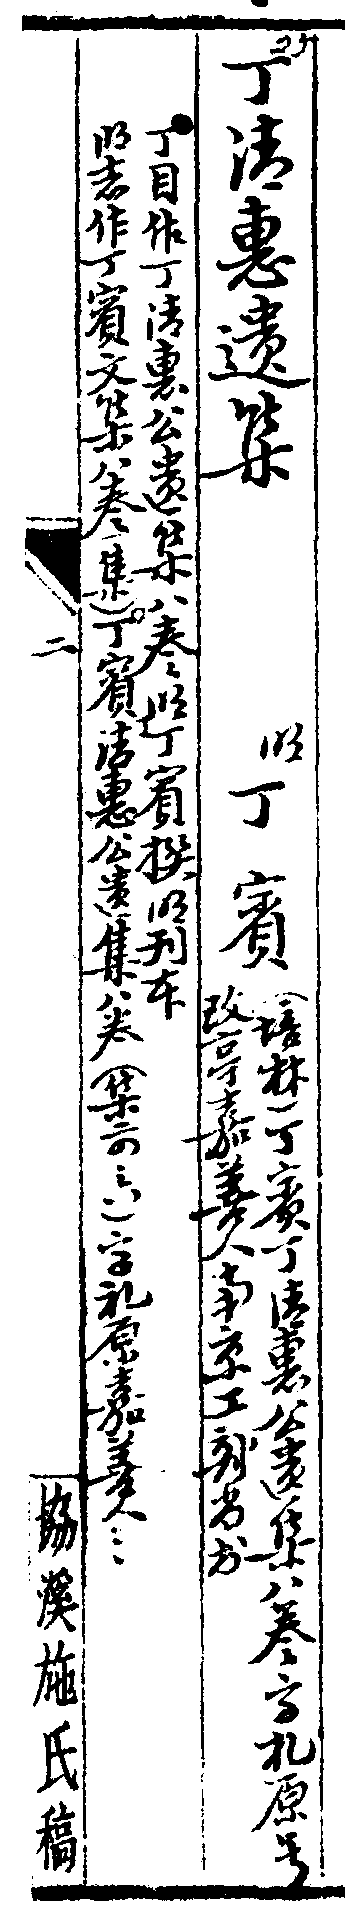 丁清惠遺集
明丁賓
（培林）丁賓丁清惠公遺集八卷字礼原号
改亭嘉善人南京工部尚书
丁目作丁清惠公遺集八卷明丁賓撰明刊本
明志作丁賓文集八卷（集）丁賓清惠公遺集八卷（集六）字礼原嘉善人
二
協溪施氏稿